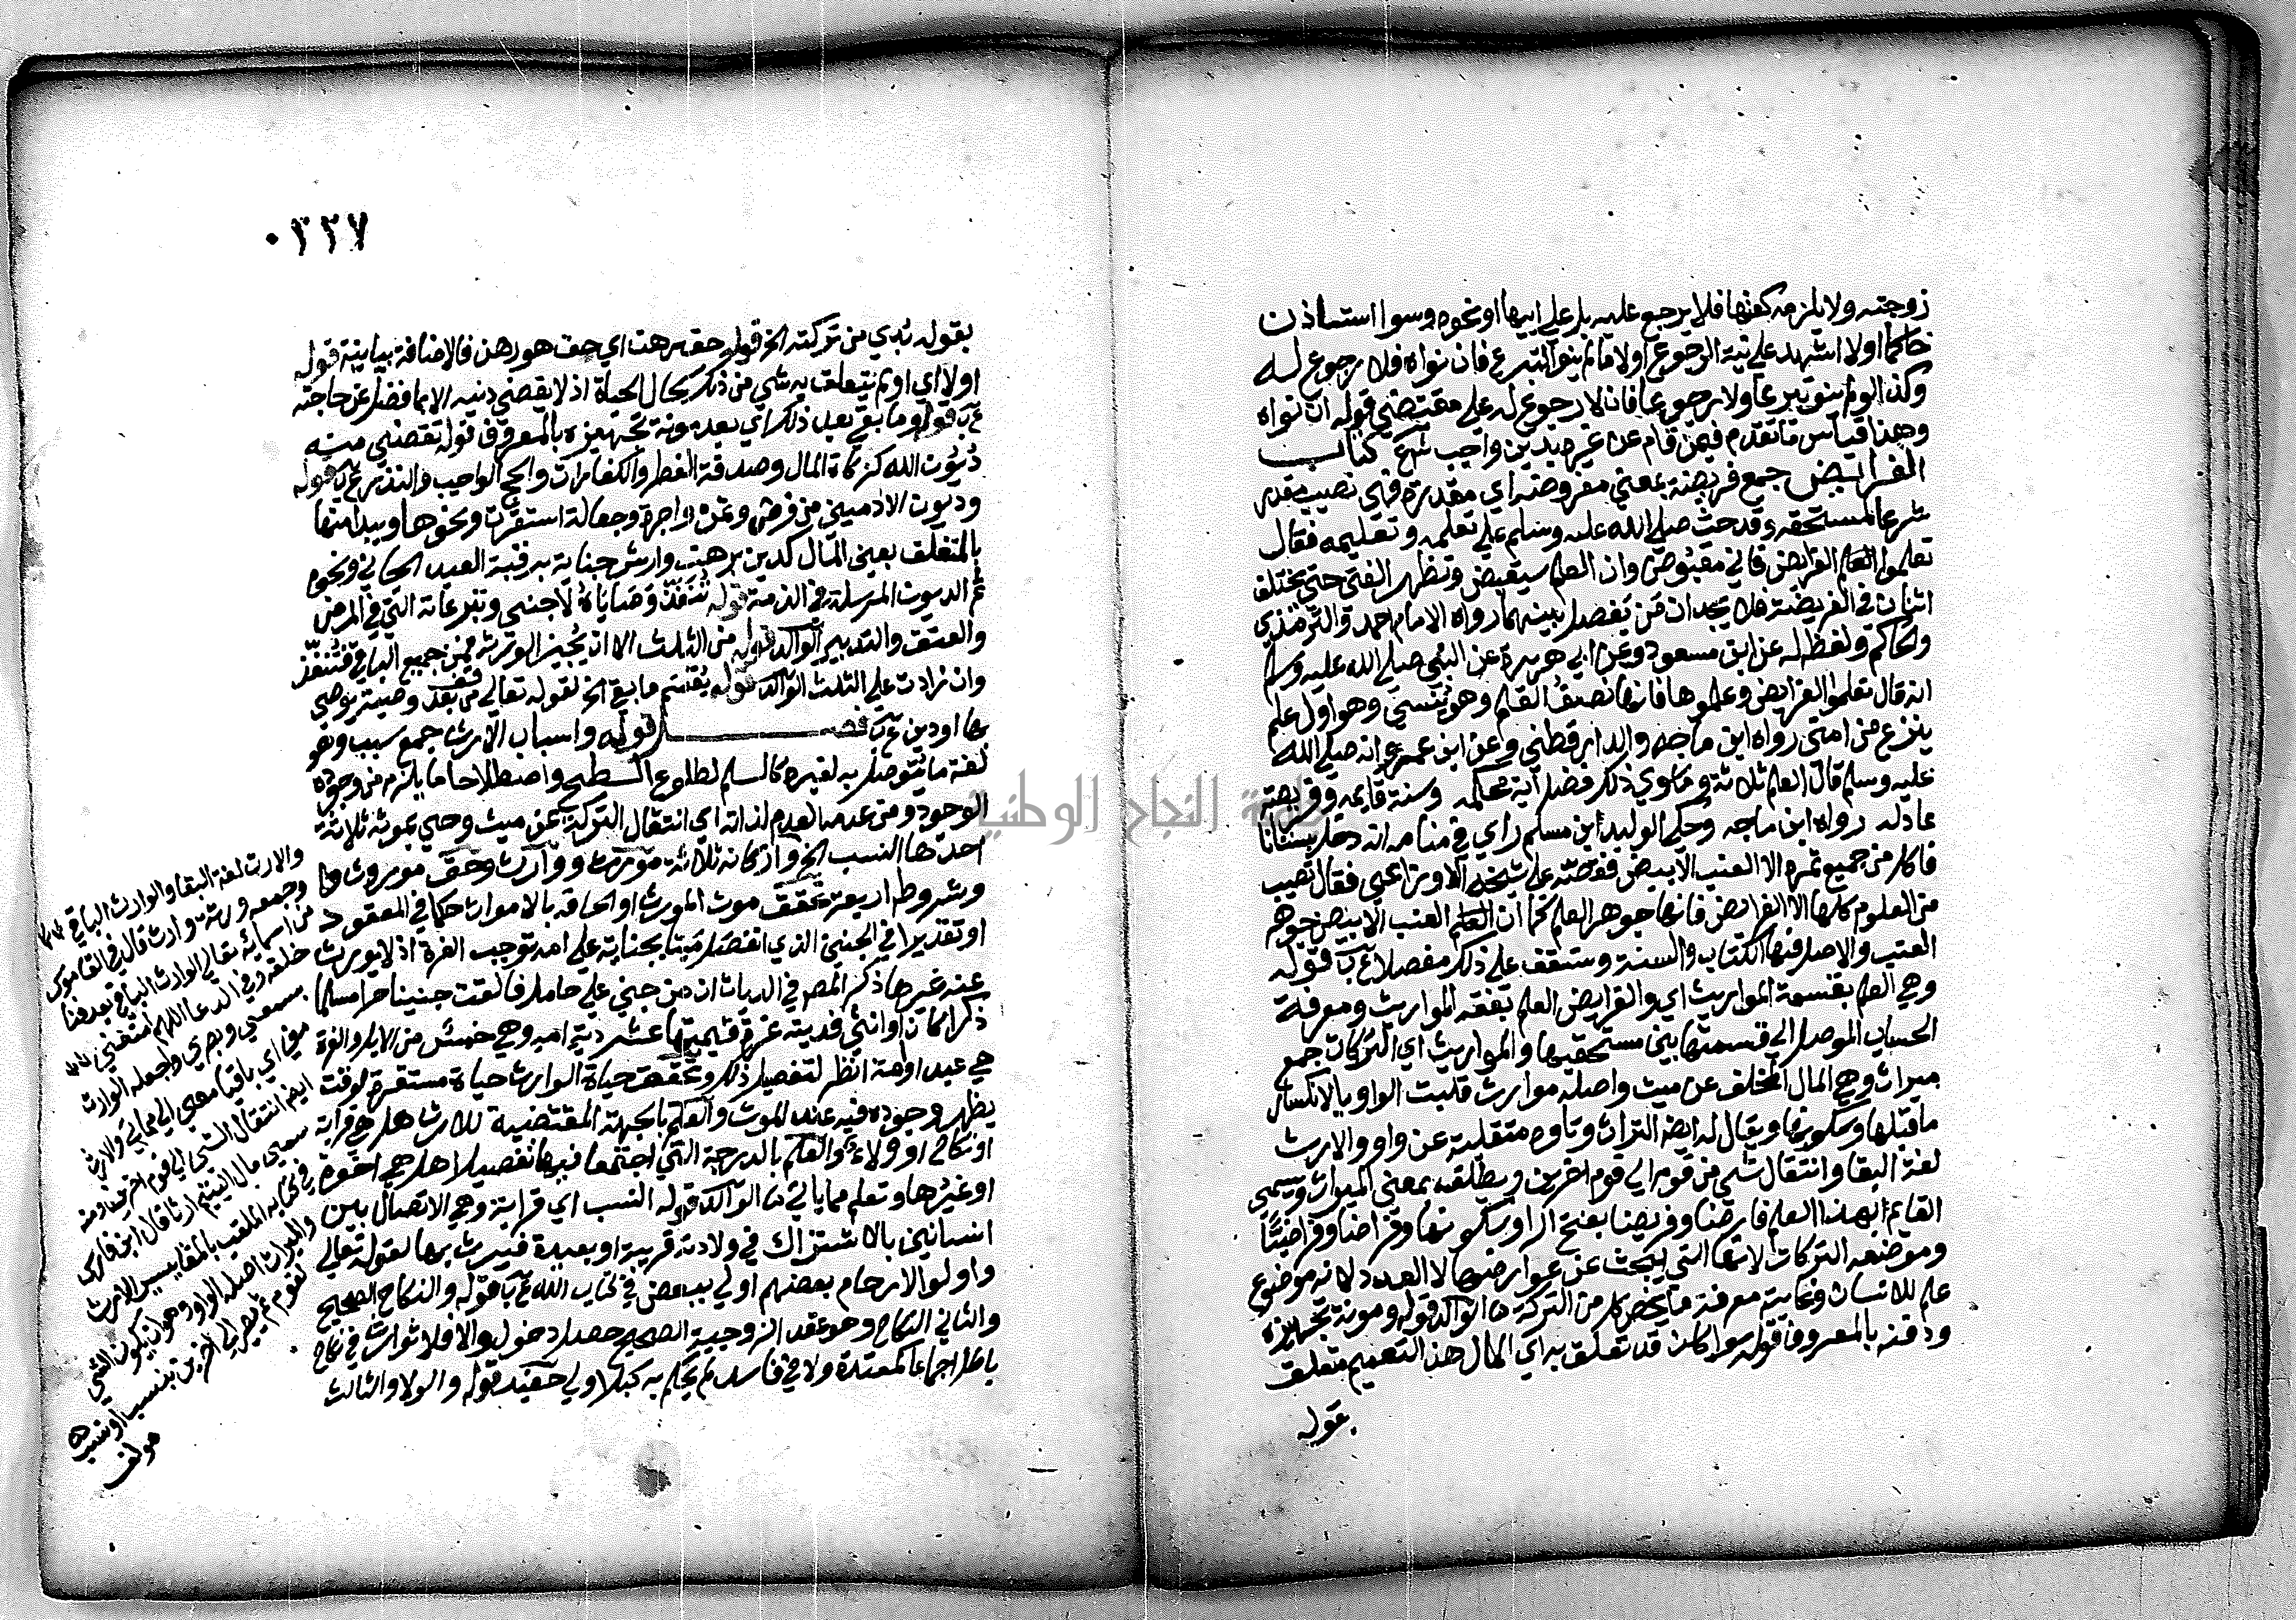 زوجته ولا يلزمه كفنها فلا يرجع عليه بل علي ابيها او نحوه وسوا استاذن
حاكما اولا اشهد علي نية الرجوع اولا ما لم ينو التبرع فان نواه فلا رجوع له
وكذا لو لم ينو تبرعا ولا رجوعا فانه لا رجوع له علي مقتضي قوله ان نواه
وهذا قياس ما تقدم فيمن قام عن غيره بدين واجب كتاب
الفرايض جمع فريضة بمعني مفروضة اي مقدرة فهي نصيب مقدر
شرعا لمستحقه وقد حث صلي الله عليه وسلم علي تعلمه وتعليمه فقال
تعلموا الفرايض فاني مقبوض وان العلم سيقبض وتظهر الفتن حتي يختلف
اثنان في الفريضة فلا يجدان من يفصل بينهما رواه الامام احمد والترمذي
والحاكم ولفظه له عن ابن مسعود وعن ابي هريرة عن النبي صلي الله عليه وسلم
انه قال تعلموا الفرايض وعلموها فانها نصف العلم وهو ينسي وهو اول علم
ينزع من امتي رواه ابن ماجه والدارقطني وعن ابن عمرو انه صلي الله
عليه وسلم قال العلم ثلاثة وما سوي ذلك فضل اية محكمه وسنة قايمه وفريضة
عادله رواه ابن ماجه وحكي الوليد ابن مسلم راي في منامه انه دخل بستانا
فاكل من جميع ثمره الا العنب الابيض فقصه علي شيخه الاوزاعي فقال تصيب
من العلوم كلها الا الفرايض فانها جوهر العلم كما ان العنب الابيض جوهر
العنب والاصل فيها الكتاب والسنة وستقف علي ذلك مفصلا ع ب قوله
وهي العلم بقسمة المواريث اي والفرايض العلم بفقه المواريث ومعرفة
الحساب الموصل الي قسمتها بين مستحقيها والمواريث اي التركات جمع
ميراث وهي المال المخلف عن ميت واصله موارث قلبت الواو يا لانكسار
ما قبلها وسكونها ويقال له ايضا التراث وتاوه منقلبة عن واو والارث
لغة البقا وانتقال شي من قوم الي قوم اخرين ويطلق بمعني الميراث ويسمي
القايم بهذا العلم فارضا وفريضا بفتح الرا وسكونها وفراضا وفرائضيا
وموضعه التركات لانها التي يبحث عن عوارضها لا العدد لانه موضوع
علم للانسان وغايته معرفة ما يخص كل من التركة قوله ومونة تجهيزه
ودفنه بالمعروف قوله سوا كان قد تعلق به اي المال هذا التعميم متعلق
بقوله
٠٣٣٧
بقوله بدي من تركته الخ قوله حق رهن اي حق هو رهن فالاضافة بيانية قوله
اولا اي او لم يتعلق به شي من ذلك كحال الحياة اذ لا يقضي دينه الا بما فضل عن حاجته
ع ب قوله وما بقي بعد ذلك اي بعد مونة تجهيزه بالمعروف قوله تقضي منه
ديون الله كزكاة المال وصدقة الفطر والكفارات والحج الواجب والنذر ع ب قوله
وديون الادميين من قرض وثمن واجرة وجعالة استقرت ونحوها ويبدا منها
بالمتعلق بعين المال كدين برهن وارش جناية برقبة العبد الجاني ونحوه
ثم الديون المرسلة في الذمة قوله تنفذ وصاياه لاجنبي وتبرعاته التي في المرض
والعتق والتدبير قوله من الثلث الا ان يجيز الورثة فمن جميع الباقي فتنفذ
وان زادت علي الثلث قوله يقسم ما بقي الخ لقوله تعالي من بعد وصية يوصي
بها او دين ع ب فصل قوله واسباب الارث جمع سبب وهو
لغة ما يتوصل به لغيره كالسلم لطلوع السطح واصطلاحا ما يلزم من وجوده
الوجود ومن عدمه العدم لذاته اي انتقال التركة عن ميت وحي بموته ثلاثة
احدها النسب الخ واركانه ثلاثة مورث ووارث وحق موروث
وشروطه اربعة تحقق موت المورث او الحاقه بالاموات حكما في المفقود
او تقديرا في الجنين الذي انفصل ميتا بجناية علي امه توجب الغرة اذ لا يورث
عنه غيرها ذكر المص في الديات ان من جني علي حامل فالقت جنينا حرا مسلما
ذكرا كان او انثي فديته غرة قيمتها عشر دية امه وهي خمس من الابل والغرة
هي عبد او امة انظر لتفصيل ذلك وتحقق حياة الوارث حياة مستقرة لوقت
يظهر وجوده فيه عند الموت والعلم بالجهة المقتضية للارث هل هي قرابة
او نكاح او ولاء والعلم بالدرجة التي اجتمعا فيها تفصيلا هل هي اخوة
او غيرها وتعلم مما ياتي قوله النسب اي قرابة وهي الاتصال بين
انسانين بالاشتراك في ولادة قريبة او بعيدة فيرث بها لقوله تعالي
واولوا الارحام بعضهم اولي ببعض في كتاب الله ع ب قوله والنكاح الصحيح
والثاني النكاح وهو عقد الزوجية الصحيح حصل دخول والا فلا توارث في نكاح
باطل اجماعا كمعتدة ولا في فاسد لم يحكم به كبلا ولي حفيد قوله والولا والثالث
والارث لغة البقا والوارث الباقي
وجمعه ورثة ووارث قال في القاموس
من اسمائه تعالي الوارث الباقي بعد فنا
خلقه وفي الدعا اللهم امتعني
بسمعي وبصري واجعله الوارث
مني اي باقيا معي الي مماتي والارث
ايضا انتقال الشي الي قوم اخرين ومنه
سمي مال الميت ارثا قال ابن فارس
في كتابه الملقب بالمقاييس الارث
والميراث اصله الواو وهو ان يكون الشي
لقوم ثم يصير الي اخرين بنسب او سبب
مولف
جامعة النجاح الوطنية